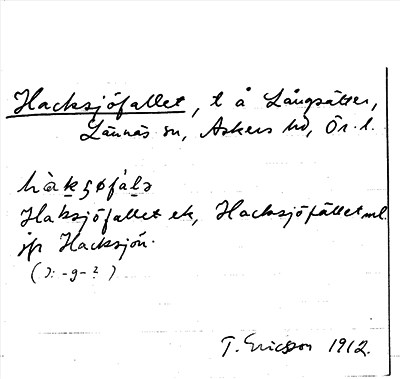 Hacksjöfallet, t å Långsätter,
Lännäs sn, Askers hd, Ör. l.
hàkʂøfálə
Haksjöfallet ek, Hacksjöfället ml.
jfr Hacksjön.
(ɔ: -g- ? )
T. Ericsson 1912.